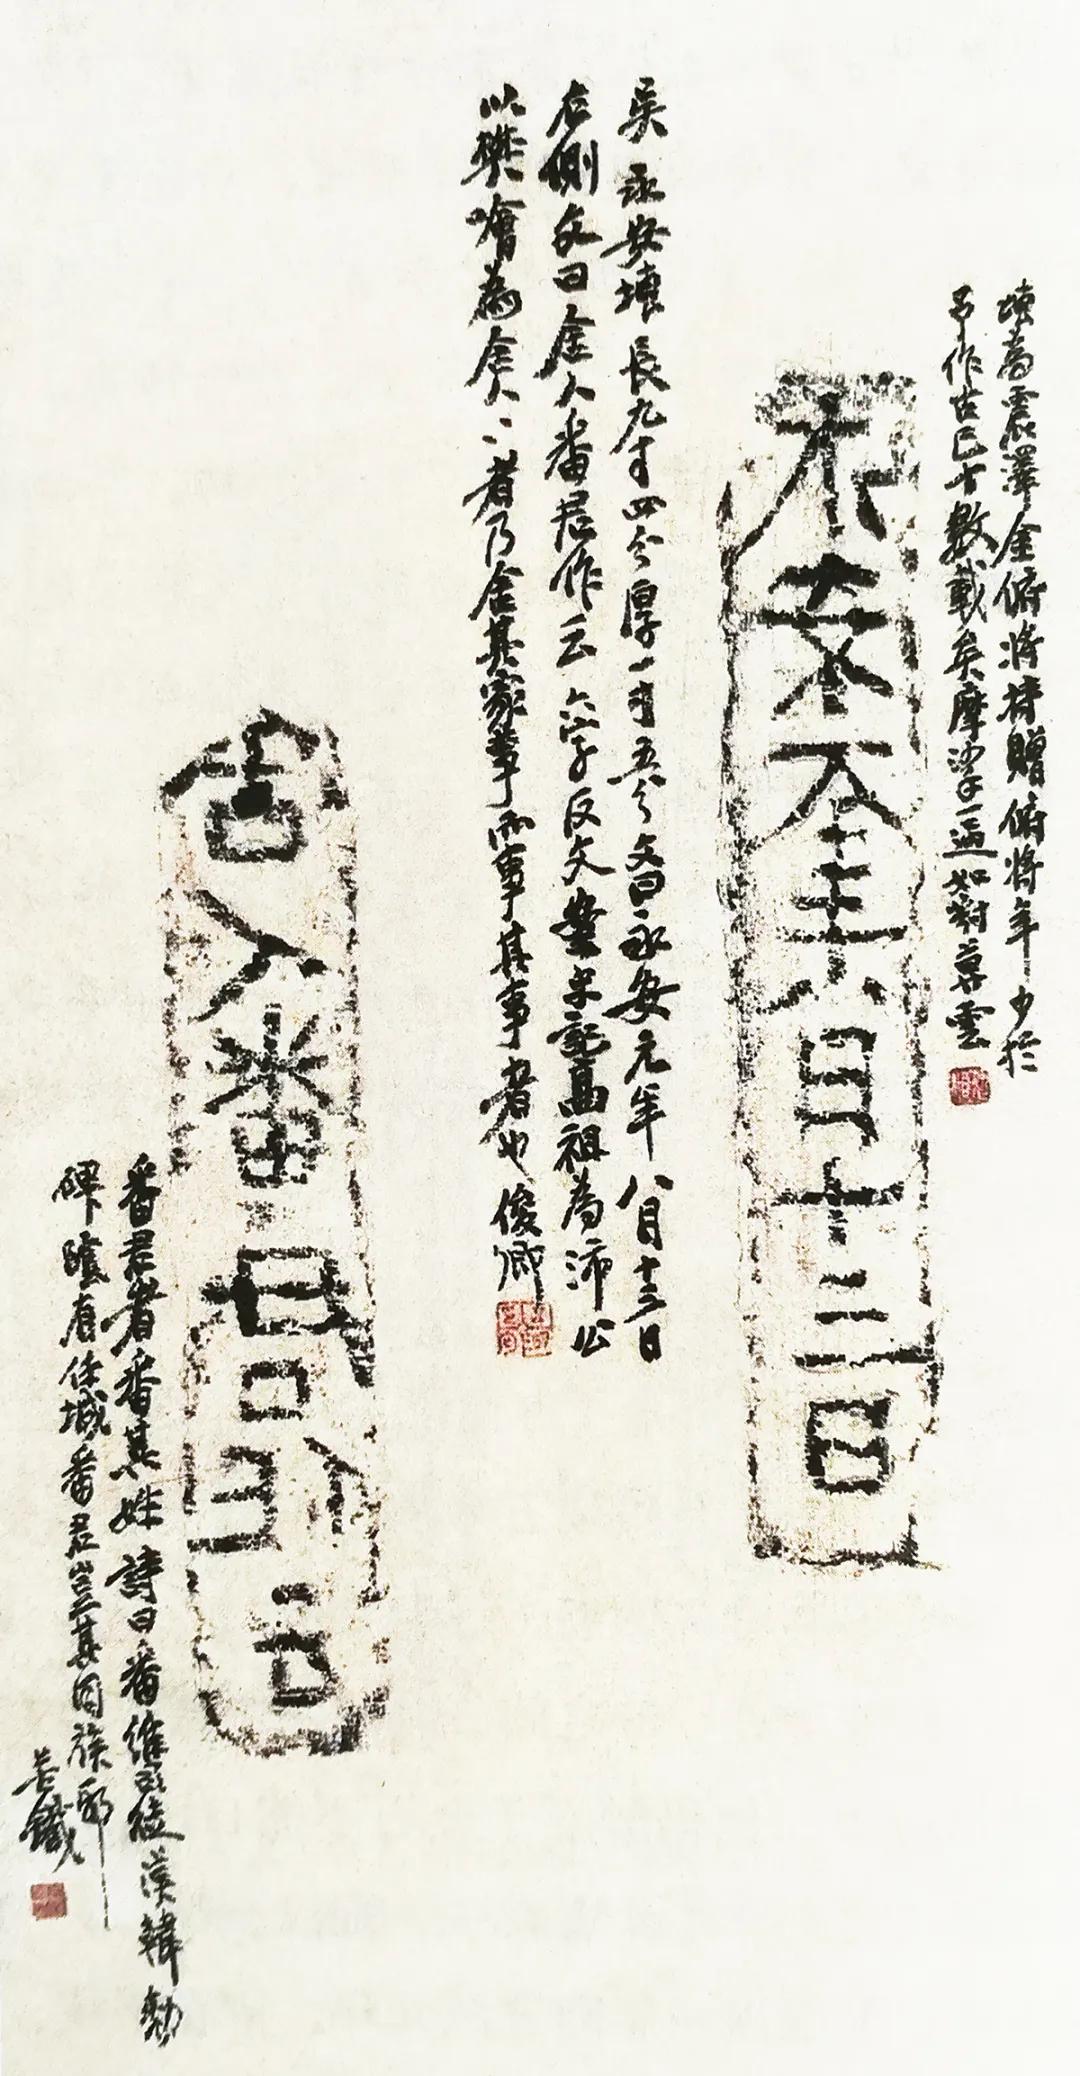 塼為震澤金俯將持贈俯將年少於
予作古已十數載矣摩挲一過如對暮雲
永安元年八月十三日
吳永安塼長九寸四分厚一寸五分文曰永安元年八月十三日
右側文曰舍人番君作云六字反文案史記高祖為沛公
以樊噲為舍人人者乃舍其家事而事其事者也俊卿
舍人番君作
番君者番其姓詩曰番維司徒漢韓勅
碑陰有徐城番君豈其同族耶
苦鐵